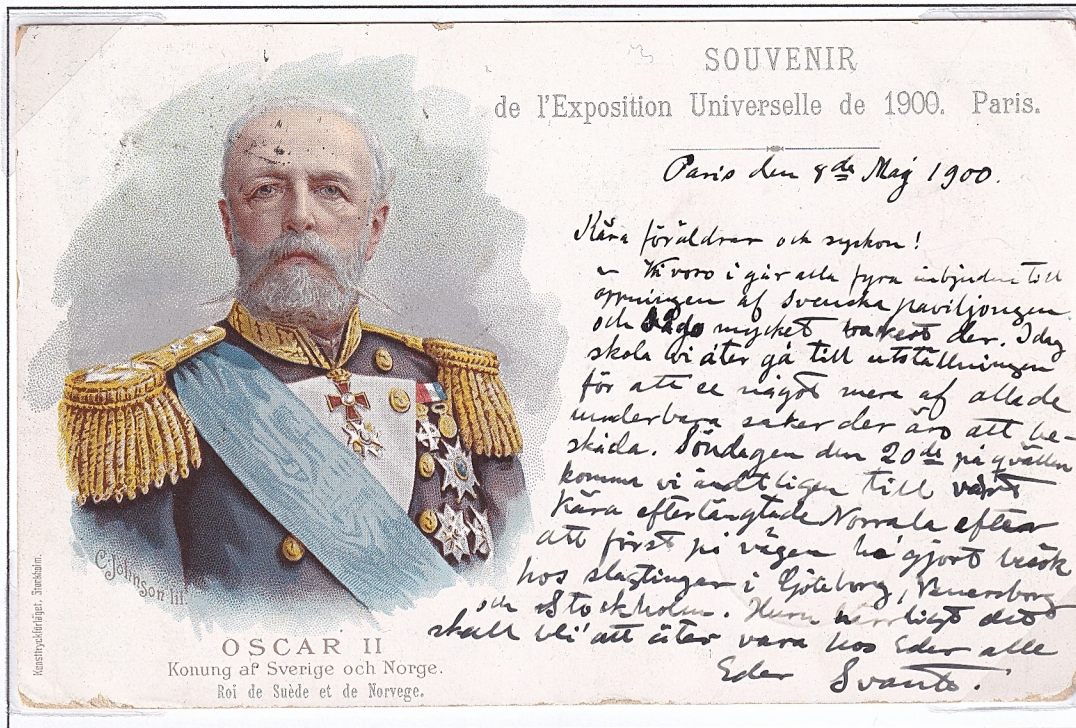 SOUVENIR
de l'Exposition Universelle de 1900. Paris.
Paris den 8de Maj 1900.
Kära föräldrar och syskon!
Vi voro i går alla fyra inbjudna till
öppningen af Svenska paviljongen
och mycket vackert der. Idag
skola vi åter gå till utställningen
för att se något mera af alla de
underbara saker der äro att be-
skåda. Söndagen den 20de på qvällen
komma vi ändtligen till vårt
Kära efterlängtade Norrala efter
att först på vägen ha gjort besök
hos släktingar i Göteborg, Venersborg
och Stockholm. Huru härrligt det
skall bli' att åter vara hos Eder alle
Eder Svante.
C. Johnson lit.
Konsttryckförlaget, Stockholm.
OSCAR II
Konung af Sverige och Norge.
Roi de Suède et de Norvege.